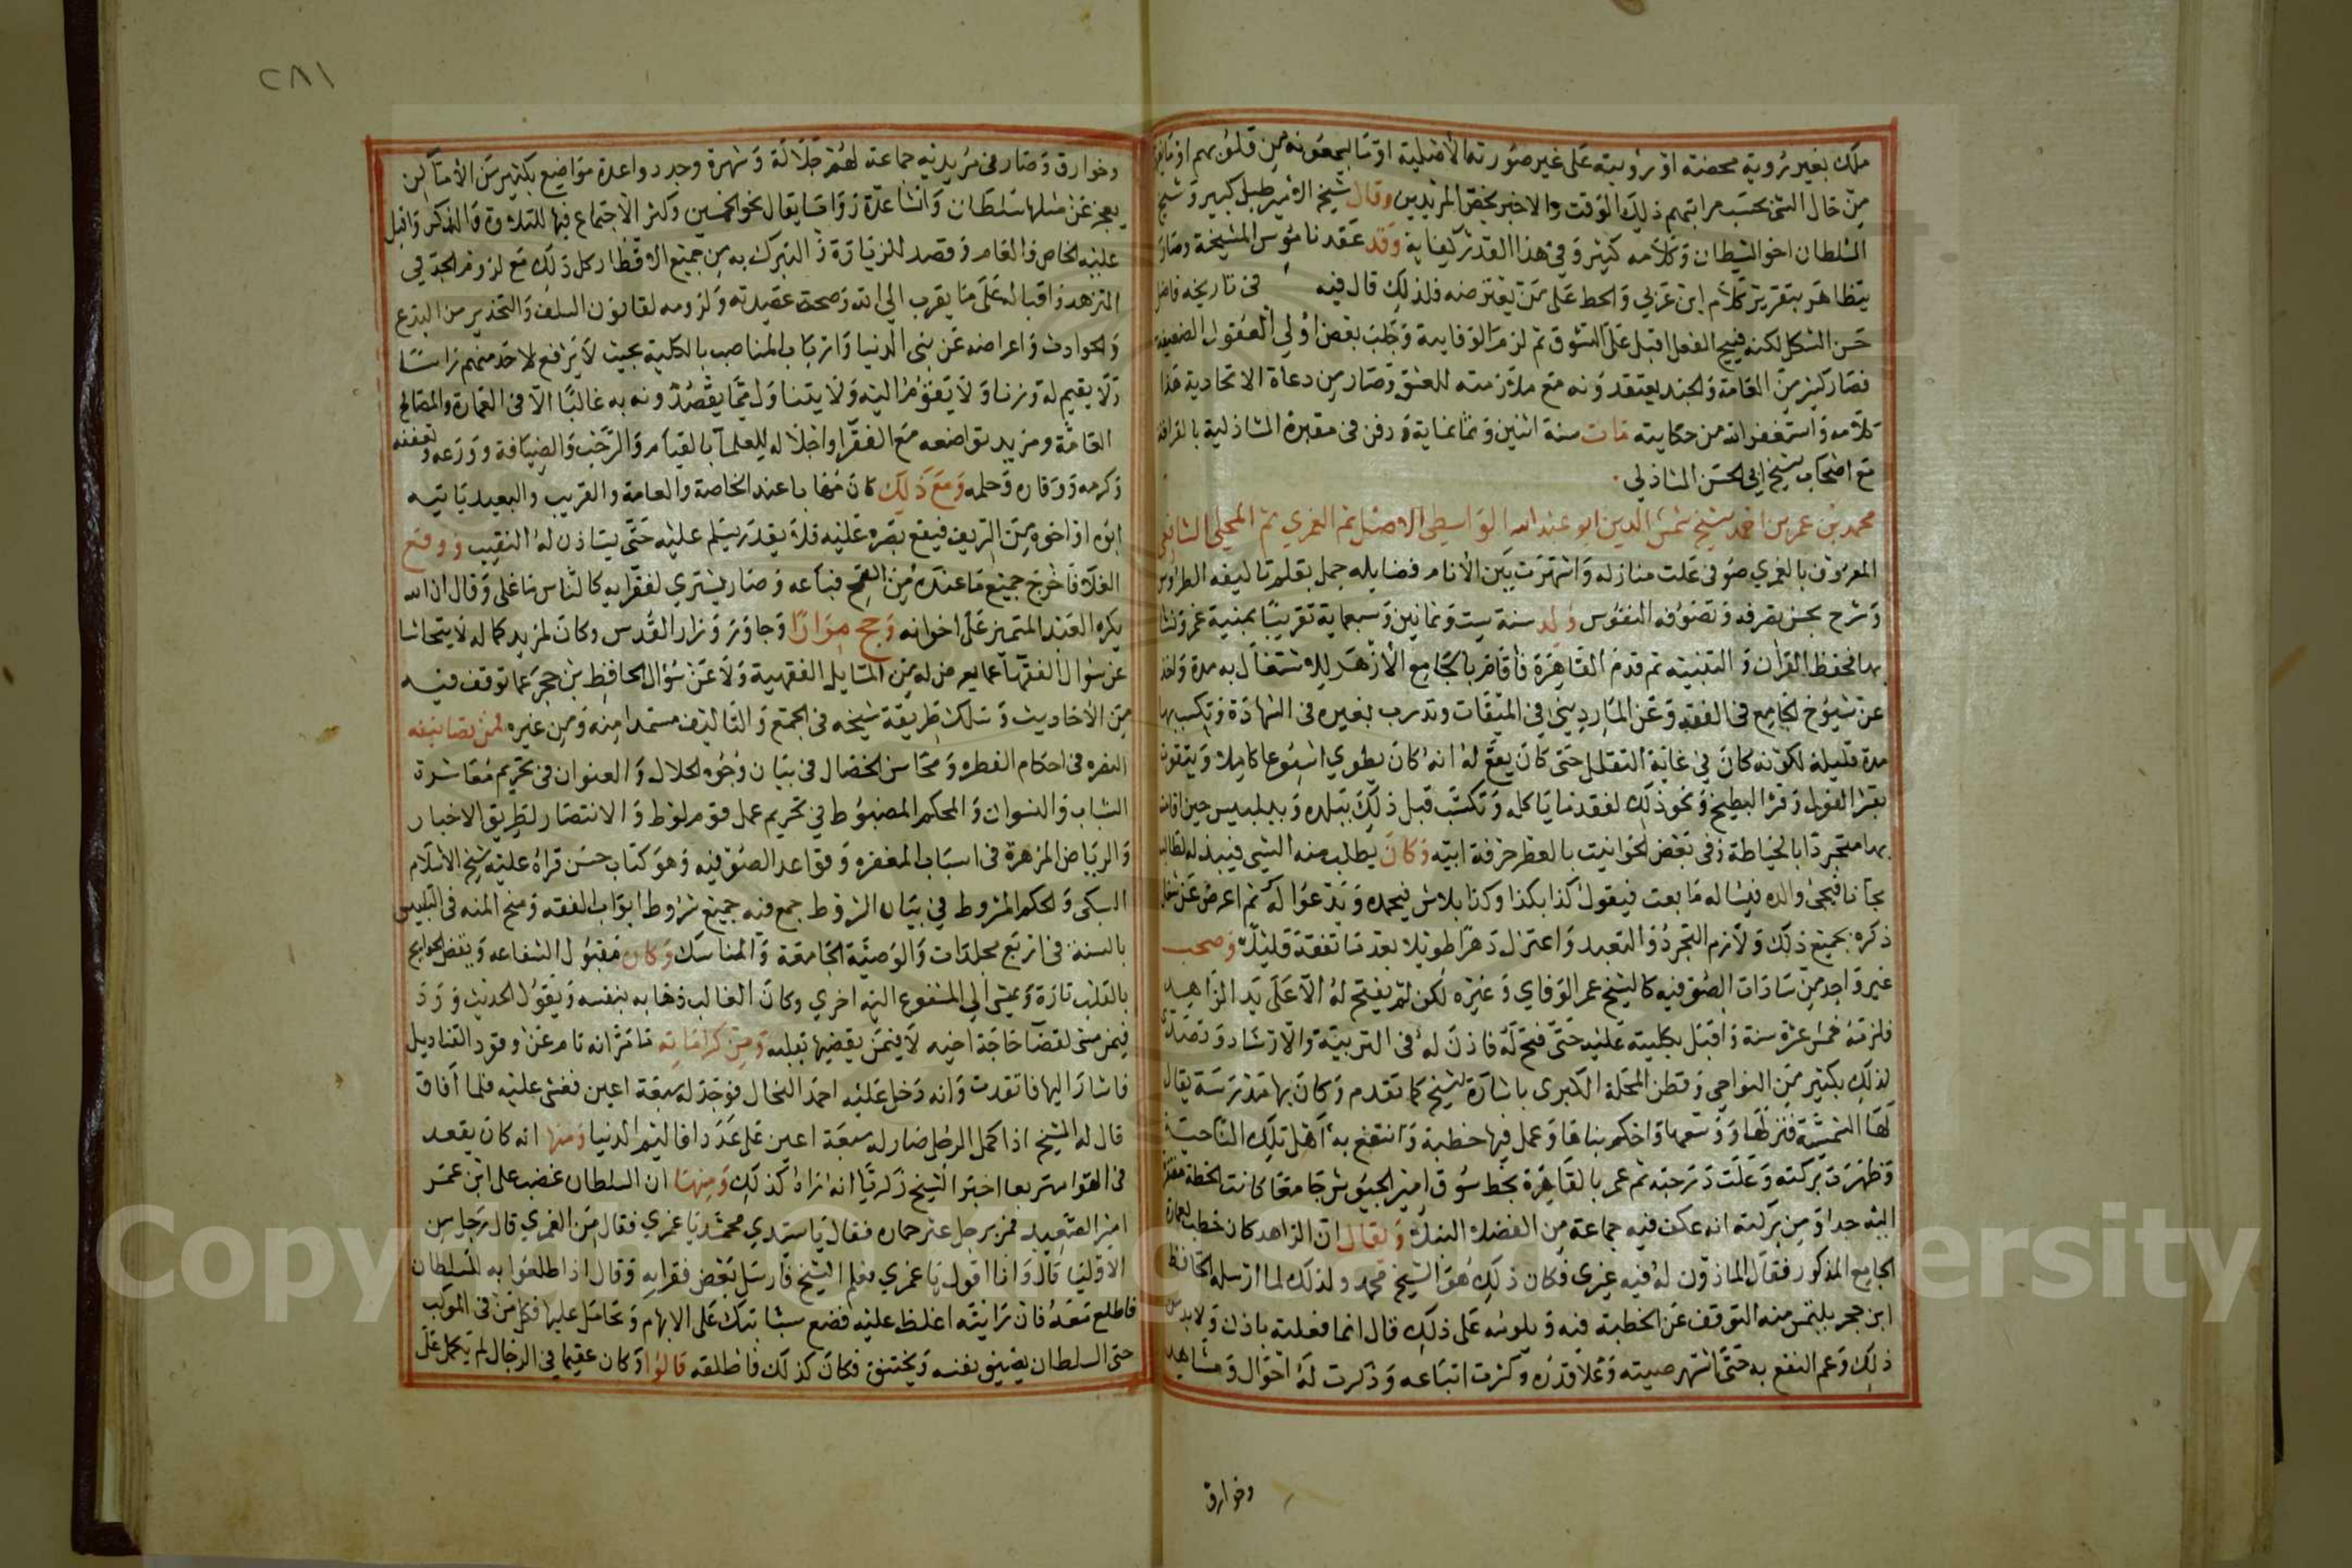 ملك بغير رؤية محضة او برؤيته على غير صورته الأصلية او ما يجمعونه من قلوبهم او
من خال الشى بحسب مراتبهم ذلك الوقت والاخير يخص المريدين وقال شيخ الامير طبل كبير وشيخ
السلطان اخو الشيطان وكلامه كثير وفى هذا القدر كفاية وقد عقد ناموس المشيخة وصار
يتظاهر بتقرير كلام ابن عربي والحط على من يعترضه فلذلك قال فيه فى تاريخه فاضل
حسن الشكل لكنه قبيح الفعل اقبل على الشوق ثم لزم الوفايية وخلب بعض اولى العقول الضعيفه
فصار كثير من العامة والجند يعتقدونه مع ملازمته للعشق وصار من دعاة الاتحادية هذا
كلامه واستغفر الله من حكايته مات سنة اثنين وثمانماية ودفن فى مقبرة الشاذلية بالقرافة
مع اصحاب الشيخ ابي الحسن الشاذلي
محمد بن عمر بن احمد الشيخ شمس الدين ابو عبد الله الواسطي الاصل ثم الغمري ثم المحلي الشافعي
المعروف بالغمري صوفى علت منازله واشتهرت بين الأنام فضايله جمل بقلم تاليفه الطروس
وشرح بحسن تصرفه وتصوفه النفوس ولد سنة ست وثمانين وسبعماية تقريبا بمنية غمر ونشا
بها فحفظ القران والتنبيه ثم قدم القاهرة فأقام بالجامع الأزهر للاشتغال به مدة واخذ
عن شيوخ الجامع فى الفقه وعن المارديني في الميقات وتدرب بغيره فى الشهادة وتكسب بها
مدة قليلة لكونه كان في غاية التقلل حتى كان يقع له انه كان يطوي اسبوعا كاملا ويتقوت
بقشر الفول وقشر البطيخ ونحو ذلك لفقد ما ياكله وتكسب قبل ذلك ببلده وببلبيس حين اقامته
بها متجردا بالخياطة وفى بعض الحوانيت بالعطر حرفة ابيه وكان يطلب منه الشي فيبذله لطالبه
مجانا فيجى والده فيساله ما بعت فيقول كذا بكذا وكذا بلاش فيحمده ويدعو له ثم اعرض عن
ذكره بجميع ذلك ولازم التجرد والتعبد واعتزل دهرا طويلا بعد ما تفقه قليلا وصحب
غير واحد من سادات الصوفيه كالشيخ عمر الوفاي وغيره لكن لم يفتح له الا على يد الزاهد
فلزمه خمس عشرة سنة واقبل بكليته عليه حتى فتح له فاذن له فى التربية والارشاد وتصدى
لذلك بكثير من النواحي وقطن المحلة الكبرى باشارة الشيخ كما تقدم وكان بها مدرسة يقال
لها الشمسية فنزلها ووسعها واحكم بناها وعمل فيها خطبة وانتفع به اهل تلك الناحية
وظهرت بركته وعلت درجته ثم عمر بالقاهرة بخط سوق امير الجيوش جامعا كانت الخطة مفتقرة
اليه جدا ومن بركته انه عكف فيه جماعة من الفضلا النبلا ويقال ان الزاهد كان خطب لعمارة
الجامع المذكور فقال الماذون له فيه غيرى فكان ذلك هو الشيخ محمد ولذلك لما ارسل له الحافظ
ابن حجر يلتمس منه التوقف عن الخطبة فيه ويلومه على ذلك قال انما فعلته باذن ولا بد من
ذلك وعم النفع به حتى اشتهر صيته وعلا قدره وكثرت اتباعه وذكرت له احوال ومشاهد
وخوارق
٢٨١
وخوارق وصار فى مريديه جماعة لهم جلالة وشهرة وجدد واعدة مواضع بكثير من الأماكن
يعجز عن مثلها سلطان وأنشا عدة زوايا يقال نحو الخمسين وكثر الاجتماع فيها للتلاوة والذكر واقبل
عليه الخاص والعام وقصد للزيارة والتبرك به من جميع الاقطار كل ذلك مع لزوم الجد في
التزهد واقباله على ما يقرب الى الله وصحة عقيدته ولزومه لقانون السلف والتحذير من البدع
والحوادث واعراضه عن بني الدنيا وارباب المناصب بالكلية بحيث لا يرفع لاحد منهم راسا
ولا يقيم له وزنا ولا يقوم اليه ولا يتناول مما يقصدونه به غالبا الا فى العمارة والمصالح
العامة ومزيد تواضعه مع الفقرا واجلاله للعلما بالقيام والترحب والضيافة وورعه وتعففه
وكرمه ووقاره وحلمه ومع ذلك كان مهابا عند الخاصة والعامة والقريب والبعيد ياتيه
ابوه او اخوه من الريف فيقع بصره عليه فلا يقدر يسلم عليه حتى يستاذن له النقيب ووقع
الغلا فاخرج جميع ما عنده من القمح فباعه وصار يشتري لفقرايه كالناس ما غلى وقال ان الله
يكره العبد المتميز على اخوانه وحج مرارا وجاور وزار القدس وكان لمزيد كماله لا يتحاشا
عن سوال الفقها عما يعرض له من المسايل الفقهية ولا عن سؤال الحافظ بن حجر عما توقف فيه
من الأحاديث وسلك طريقة شيخه فى الجمع والتاليف مستمدا منه ومن غيره فمن تصانيفه
النصره فى احكام الفطره ومحاسن الخصال فى بيان وجوه الحلال والعنوان فى تحريم معاشرة
الشاب والنسوان والمحكم المضبوط في تحريم عمل قوم لوط والانتصار لطريق الاخيار
والرياض المزهرة فى اسباب المغفره وقواعد الصوفيه وهو كتاب حسن قراه عليه شيخ الاسلام
السبكى والحكم المشروط في بيان الشروط جمع فيه جميع شروط ابواب الفقه ومنح المنه فى التلبس
بالسنة فى اربع مجلدات والوصية الجامعة والمناسك وكان مقبول الشفاعه ويقضى الحوايج
بالقلب تارة ويمشى الى المشفوع اليه اخري وكان الغالب ذهابه بنفسه ويقول الحديث ورد
فيمن مشى لقضا حاجة اخيه لا فيمن يقضيها بقلبه ومن كراماته ما مر انه نام عن وقود القناديل
فاشار اليها فاتقدت وانه دخل عليه احمد النحال فوجد له سبعة اعين فغشى عليه فلما افاق
قال له الشيخ اذا كمل الرجل صار له سبعة اعين على عدد اقاليم الدنيا ومنها انه كان يقعد
فى الهوا متربعا اخبر الشيخ زكريا انه راه كذلك ومنها ان السلطان غضب على ابن عمر
امير الصعيد فمر برجل عثر حماره فقال يا سيدي محمد يا غمري فقال من الغمري قال رجل من
الاوليا قال وانا اقول يا غمري فعلم الشيخ فارسل بعض فقرايه وقال اذا طلعوا به للسلطان
فاطلع معه فان رايته اغلظ عليه فضع سبابتك على الابهام وتحامل عليها فكل من فى الموكب
حتى السلطان يضيق نفسه ويختنق فكان كذلك فاطلقه قالوا وكان عقيما في الرجال لم يكمل على
Copyright © King Saud University